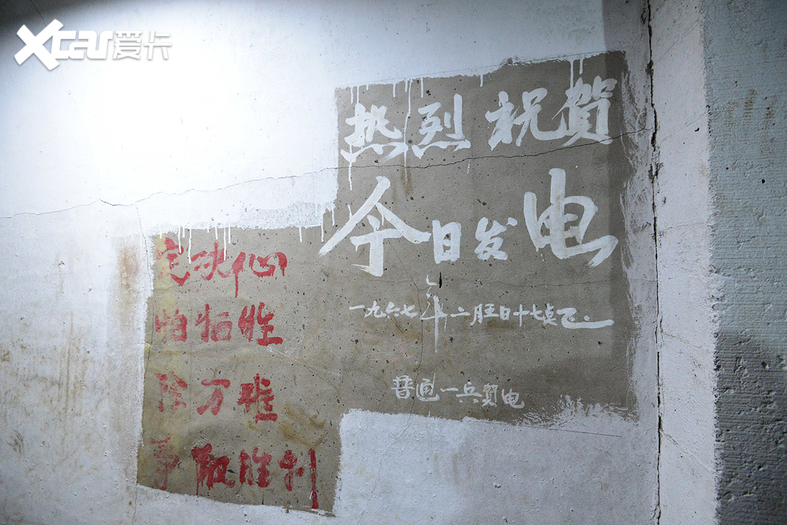 XCar爱卡
热烈祝賀
今日发电
一九六七年二月五日十七点
普通一兵賀电
定决心
怕牺牲
除万难
争取胜利